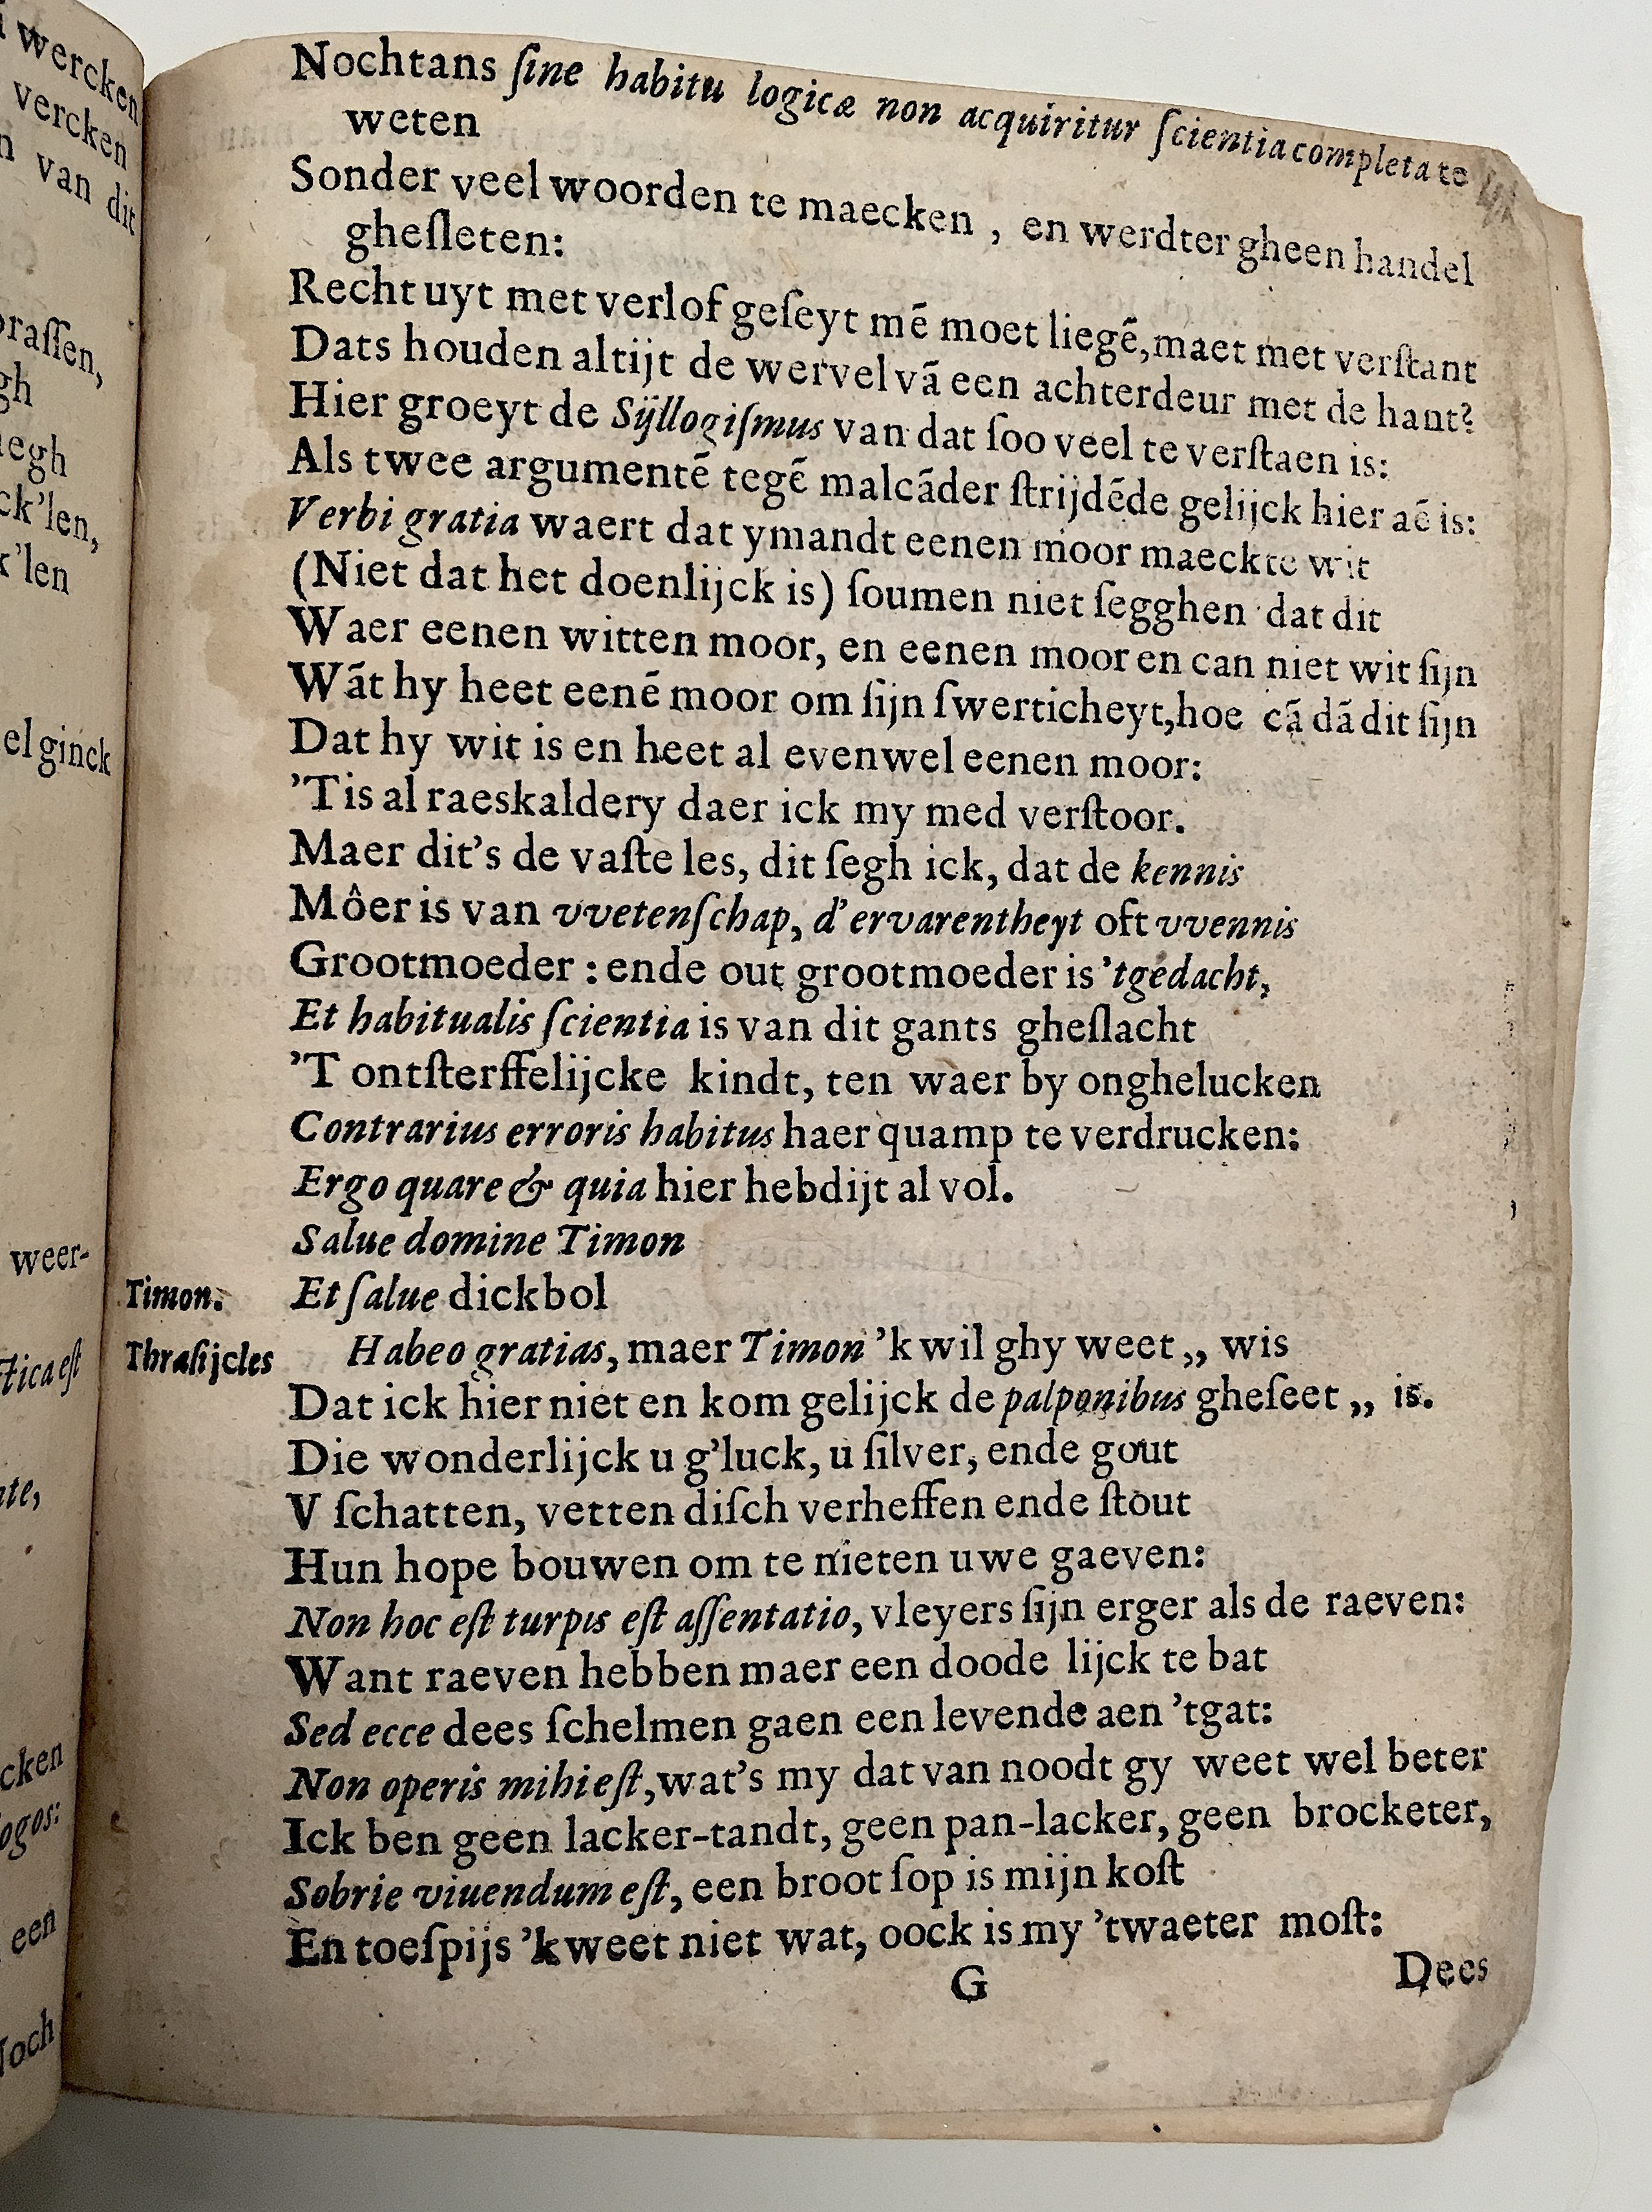 i wercken
vercken
n van dit
prassen,
gh
negh
ck'len,
k'len
el ginck
weer-
ctica eſt
ate,
cken
logos:
een
Noch
Nochtans ſine habitu logicæ non acquiritur ſcientia completa te
weten
Sonder veel woorden te maecken , en werdter gheen handel
gheſleten:
Recht uyt met verlof geſeyt mē moet liegē, maet met verſtant
Dats houden altijt de wervel vā een achterdeur met de hant?
Hier groeyt de Sÿllogiſmus van dat ſoo veel te verſtaen is:
Als twee argumentē tegē malcāder ſtrijdēde gelijck hier aē is:
Verbi gratia waert dat ymandt eenen moor maeckte wit
(Niet dat het doenlijck is) ſoumen niet ſegghen dat dit
Waer eenen witten moor, en eenen moor en can niet wit ſijn
Wāt hy heet eenē moor om ſijn ſwerticheyt, hoe cā dā dit ſijn
Dat hy wit is en heet al evenwel eenen moor:
'Tis al raeskaldery daer ick my med verſtoor.
Maer dit's de vaſte les, dit ſegh ick, dat de kennis
Môer is van vvetenſchap, d'ervarentheyt oft vvennis
Grootmoeder : ende out grootmoeder is 'tgedacht,
Et habitualis ſcientia is van dit gants gheſlacht
'T ontſterffelijcke kindt, ten waer by onghelucken
Contrarius erroris habitus haer quamp te verdrucken:
Ergo quare & quia hier hebdijt al vol.
Salue domine Timon
Timon. Et ſalue dickbol
Thraſijcles Habeo gratias, maer Timon 'k wil ghy weet „ wis
Dat ick hier niet en kom gelijck de palponibus gheſeet „ is.
Die wonderlijck u g'luck, u ſilver, ende gout
V ſchatten, vetten diſch verheffen ende ſtout
Hun hope bouwen om te nieten uwe gaeven:
Non hoc eſt turpis eſt aſſentatio, vleyers ſijn erger als de raeven:
Want raeven hebben maer een doode lijck te bat
Sed ecce dees ſchelmen gaen een levende aen 'tgat:
Non operis mihi eſt, wat's my dat van noodt gy weet wel beter
Ick ben geen lacker-tandt, geen pan-lacker, geen brocketer,
Sobrie viuendum eſt, een broot ſop is mijn koſt
En toeſpijs 'k weet niet wat, oock is my 'twaeter moſt:
G
Dees